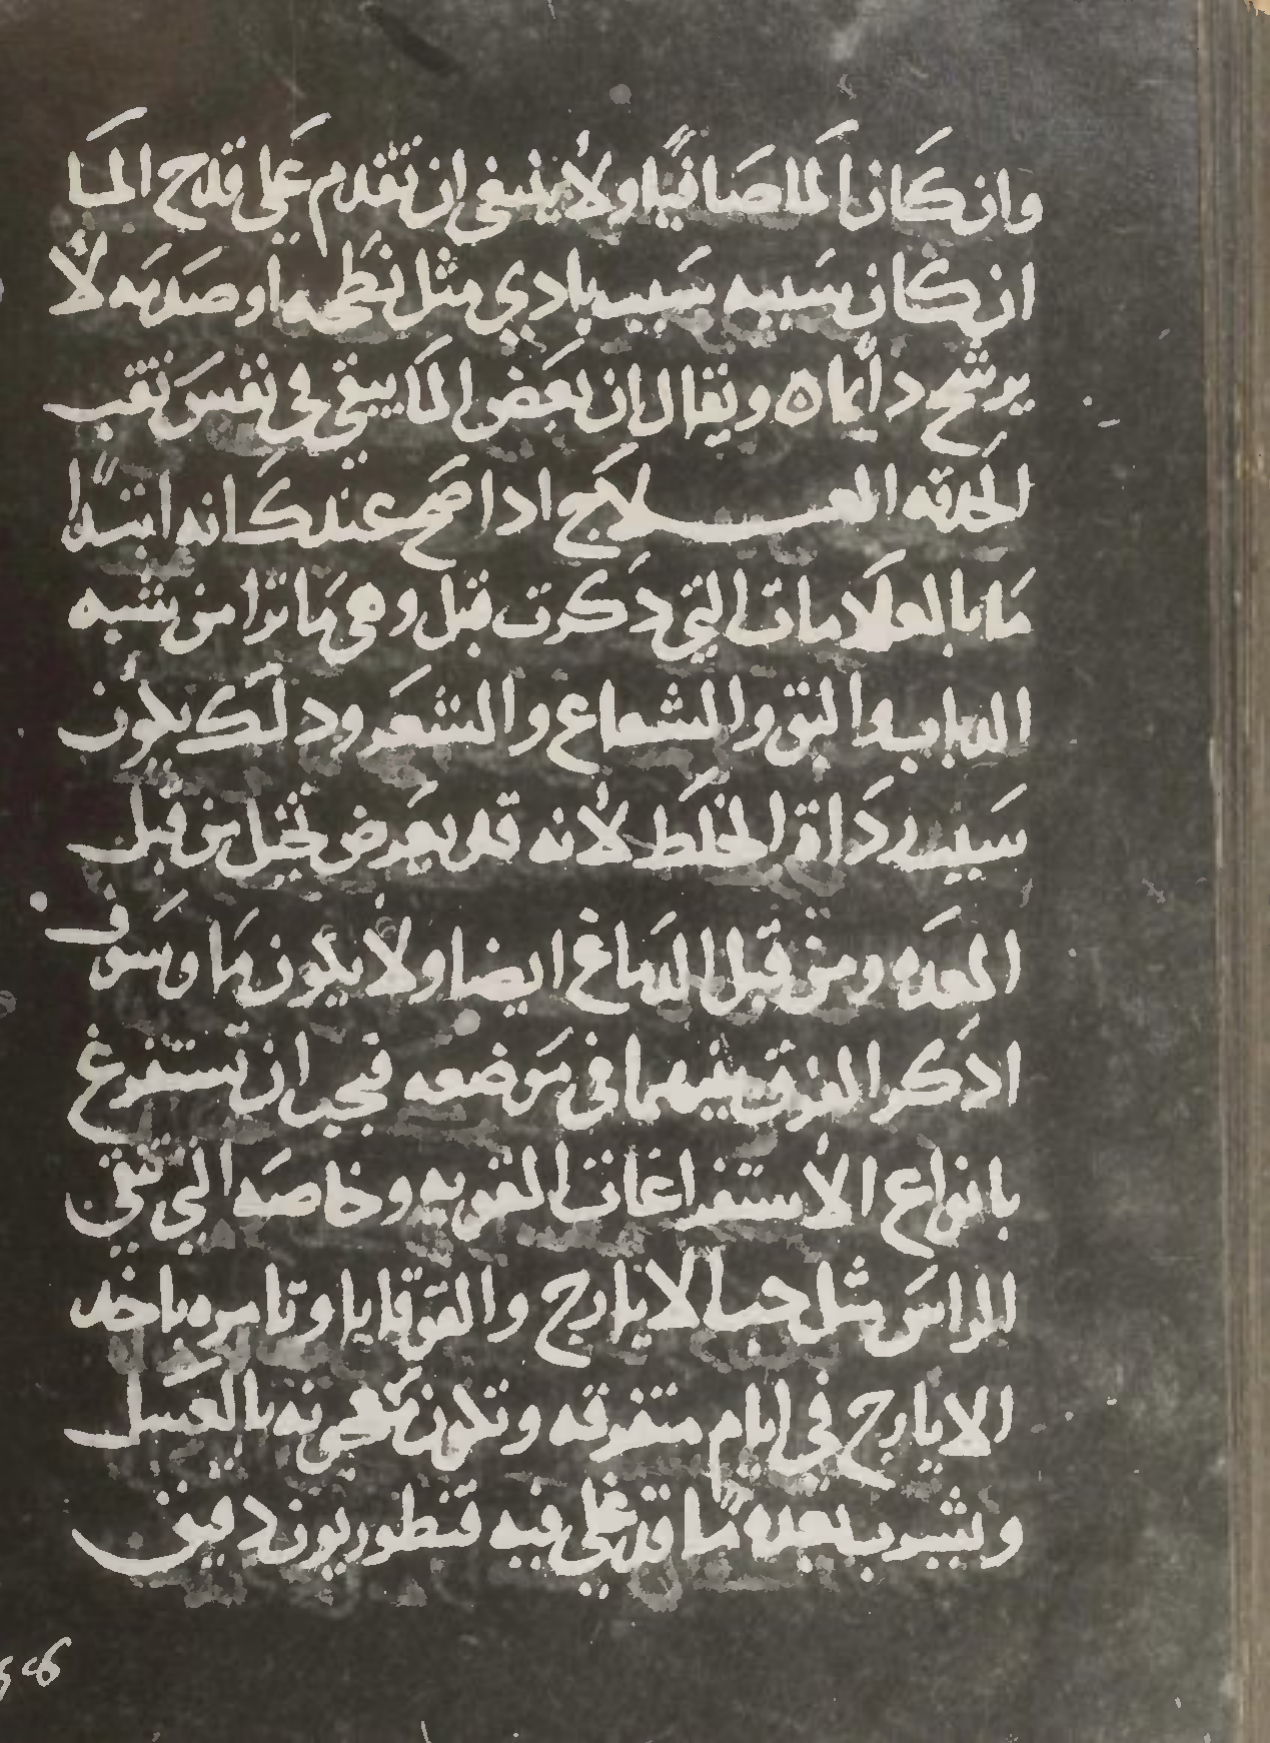 وان كان الما صافيًا ولا ينبغي ان تقدم على قدح الما
ان كان سببه سبب بادي مثل نطحه او صدمه لا
يرشح دايما ه ويقال ان بعض الما يبقى في نفس ثقب
الحدقه العـــلاج ادا صح عندك انه ابتدا
ما بالعلامات التي دكرت قبل وهي ما ترا من شبه
الدباب والبق والشعاع والشعر ودلك يكون
سببه رداة الخلط لانه قد يعرض تخيل من قبل
المعده ومن قبل الدماغ ايضا ولا يكون ما وسوف
ادكر الفرق بينهما في موضعه فيجب ان تستفرغ
بانواع الاستفراغات القويه وخاصه التي تنقي
الراس مثل حب الايارج والقوقايا وتامره باخد
الايارج في ايام متفرقه وتكون معجونه بالعسل
ويشرب بعده ما قد غلي فيه قنطوريون دقيق